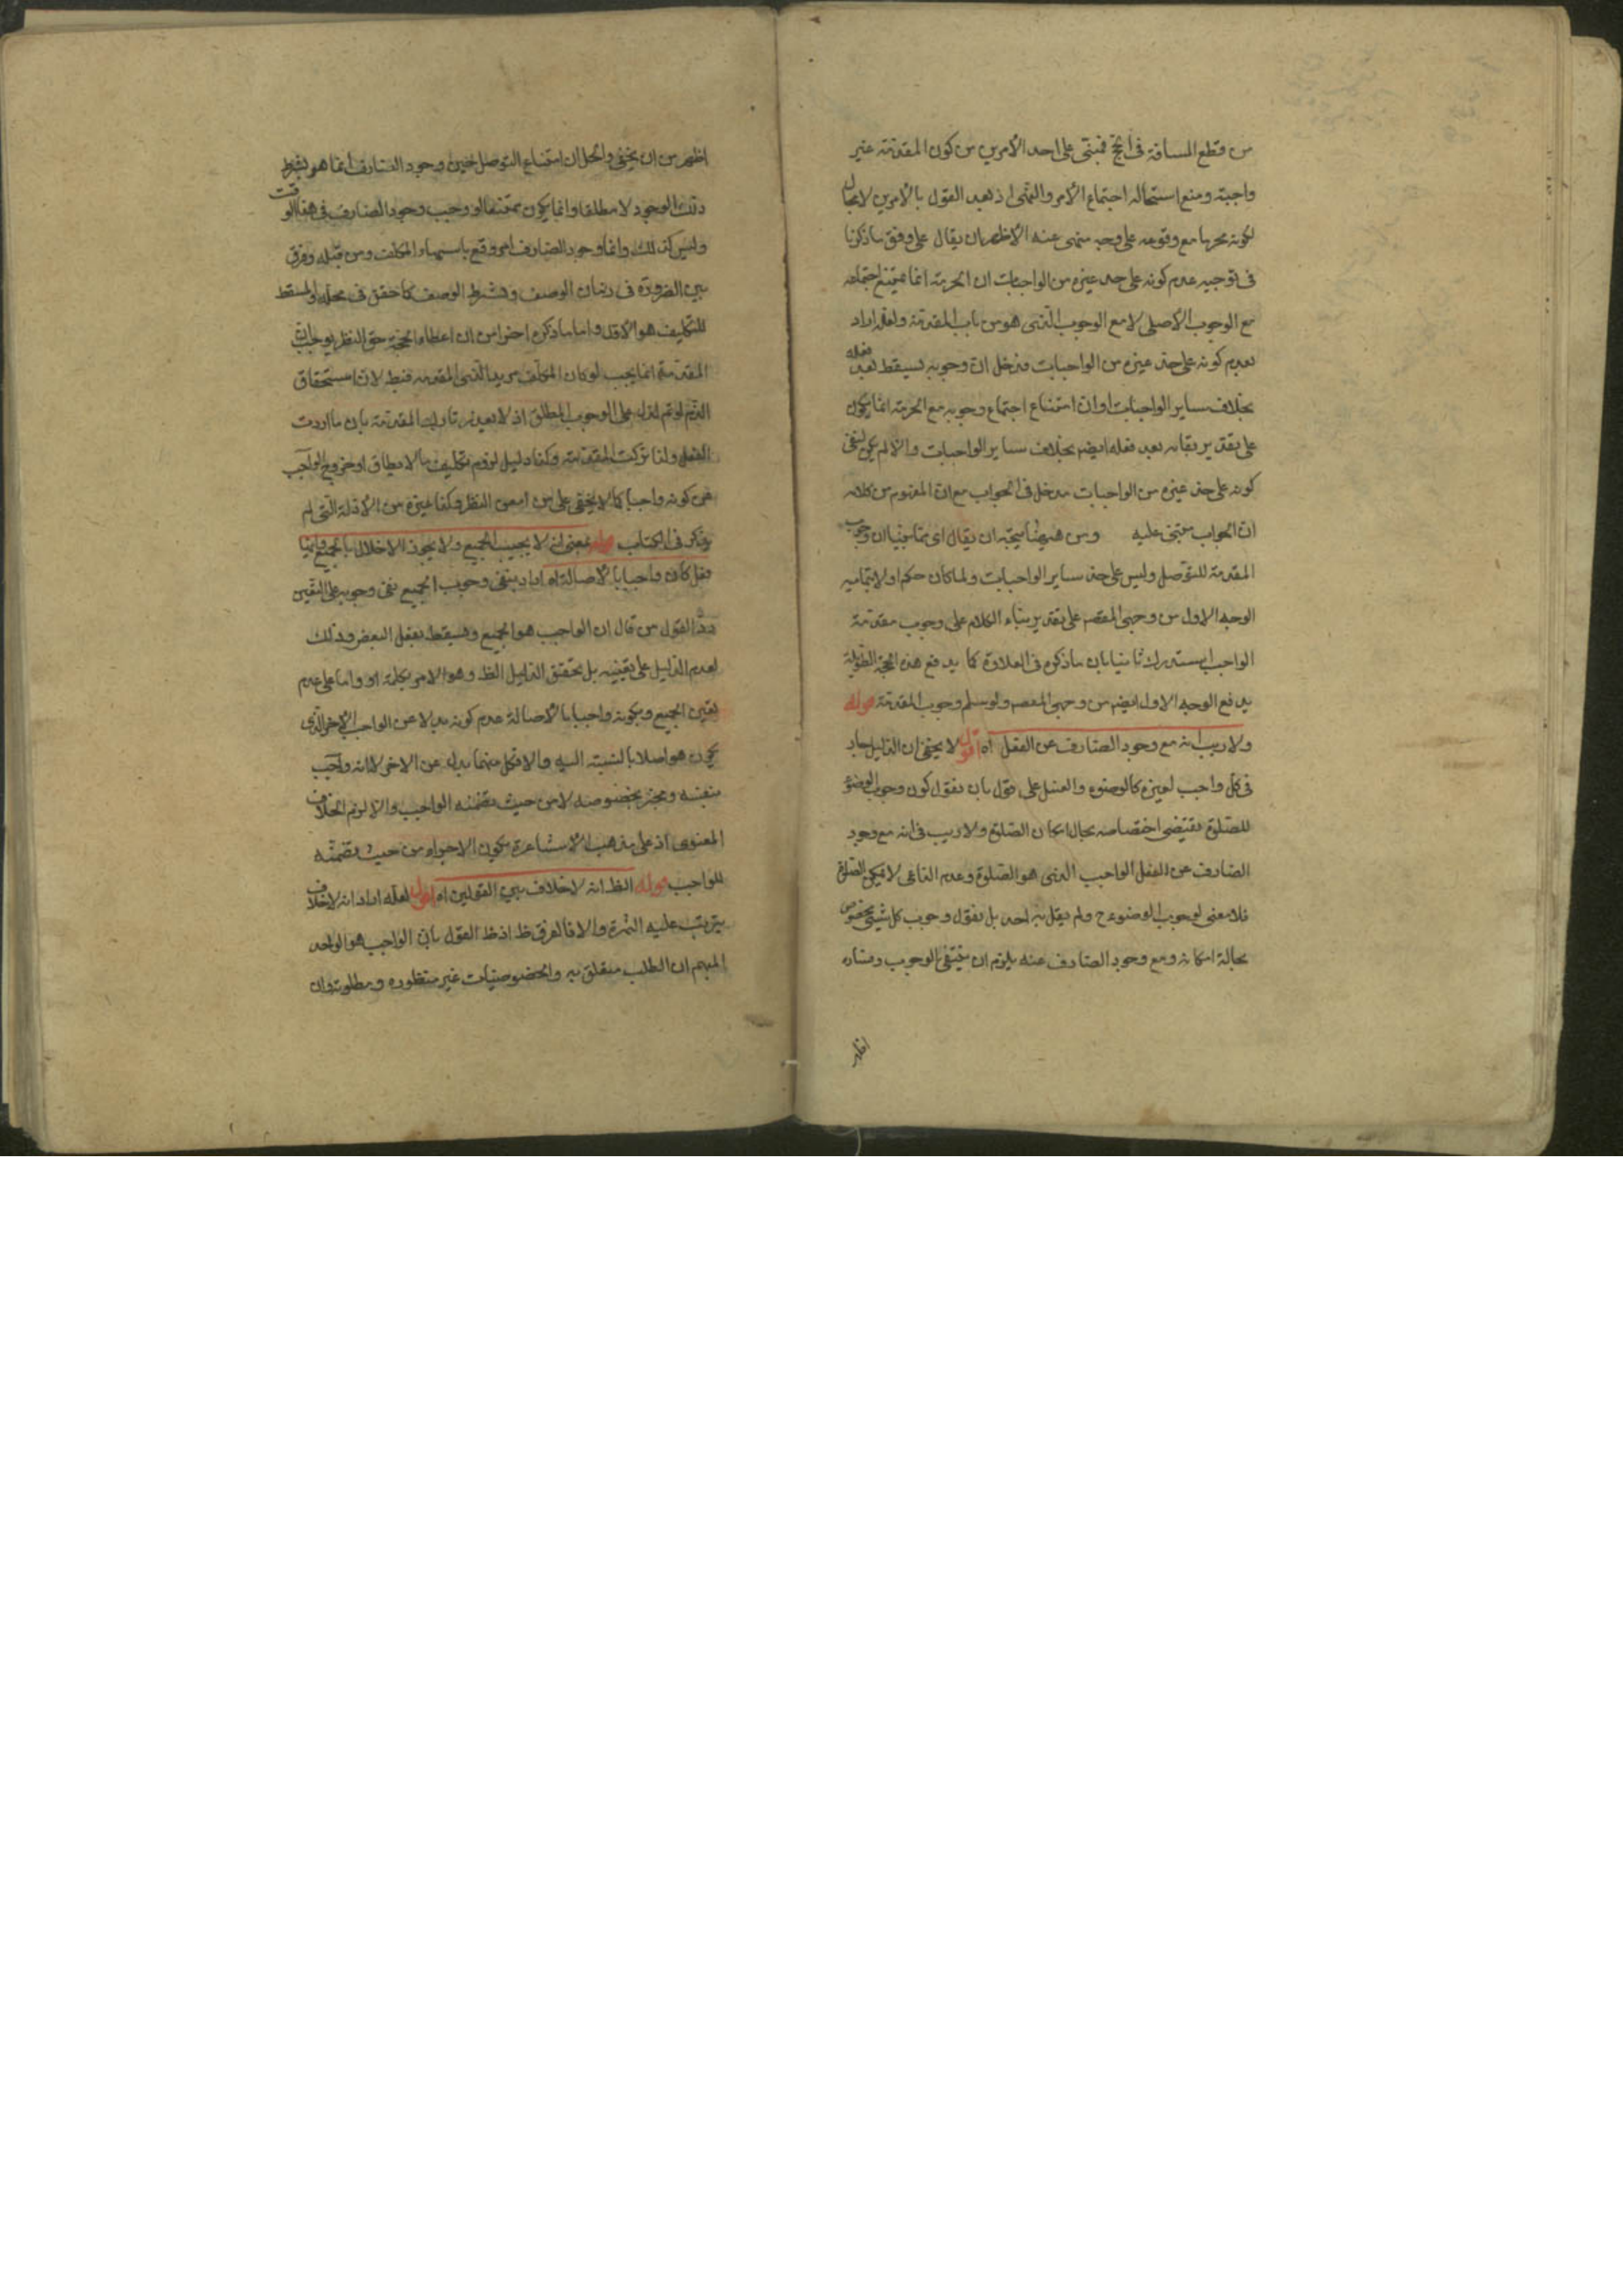 من قطع المسافة فى الحج فمبنى على احد الامرين من كون المقدمة غير
واجبة ومنع استحالة اجتماع الامر والنهى اذ بعد القول بالامرين لا مجال
لكونه محرما مع وقوعه على وجه منهى عنه الاظهر ان يقال على وفق ما ذكرنا
فى توجيه عدم كونه على حد غيره من الواجبات ان الحرمة انما يمتنع اجتماعه
مع الوجوب الاصلى لا مع الوجوب الذى هو من باب المقدمة ولعله اراد
بعدم كونه على حد غيره من الواجبات مدخل ان وجوبه يسقط بعد فعله
بخلاف ساير الواجبات او ان امتناع اجتماع وجوبه مع الحرمة انما يكون
على تقدير بقائه بعد فعله ايضا بخلاف ساير الواجبات والا لم يكن لنفى
كونه على حد غيره من الواجبات مدخل فى الجواب مع ان المفهوم من كلامه
ان الجواب مبتنى عليه ومن ههنا يتجه ان يقال اى ثانيا ان وجوب
المقدمة للتوصل وليس على حد ساير الواجبات ولما كان حكم اولا بتمامية
الوجه الاول من وجهى المقصم على تقدير بناء الكلام على وجوب مقدمة
الواجب استدرك ثانيا بان ما ذكره فى العلاوة كما يدفع هذه الحجة الطويلة
يدفع الوجه الاول ايضا من وجهى المعصم ولو سلم وجوب المقدمة قوله
ولا ريب انه مع وجود الصارف عن الفعل اه اقول لا يخفى ان الدليل جار
فى كل واجب لغيره كالوضوء والغسل على قول بان نقول كون وجوب الوضوء
للصلوة يقتضى اختصاصه بحال امكان الصلوة ولا ريب فى انه مع وجود
الصارف عن الفعل الواجب الذى هو الصلوة وعدم الداعى لا يمكن الصلوة
فلا معنى لوجوب الوضوء ح ولم يقل به احد بل نقول وجوب كل شيئ مخصوص
بحالة امكانه ومع وجود الصارف عنه يلزم ان ينتفى الوجوب وفساده
اظهر
اظهر من ان يخفى والحل ان امتناع التوصل حين وجود الصارف انما هو بشرط
ذلك الوجود لا مطلقا وانما يكون ممتنعا لو وجب وجود الصارف فى هذا الوقت
وليس كذلك وانما وجود الصارف امر وقع المكلف ومن قبله وفرق
بين الضرورة فى زمان الوصف وبشرط الوصف كما حقق فى محله والمسقط
للتكليف هو الاول واما ما ذكره اخرا من ان اعطاء الحجة حق النظر يوجب ان
المقدمة انما يجب لو كان المكلف مريدا لذى المقدمة فقط لان استحقاق
الذم لو تم لدل على الوجوب المطلق اذ لا يعذر تارك المقدمة بان ما اردت
الفعل ولذا تركت المقدمة وكذا دليل لزوم تكليف ما لا يطاق او خروج الواجب
عن كونه واجبا كما لا يخفى على من امعن النظر وكذا غيره من الادلة التى لم
يذكر فى الكتاب قوله بمعنى انه لا يجب الجميع ولا يجوز الاخلال بالجميع وايها
فعل كان واجبا بالاصالة اه اراد بنفى وجوب الجميع نفى وجوبه على التعيين
رد القول من قال ان الواجب هو الجميع ويسقط بفعل البعض وذلك
لعدم الدليل على تعيينه بل تحقق الدليل الظ وهو الامر بكلمة او واما على عدم
تعين الجميع وبكونه واجبا بالاصالة عدم كونه بدلا عن الواجب الاخر الذى
يكون هو اصلا بالنسبة اليه والا فكل منهما بدل عن الاخر لا انه واجب
بنفسه ومجز بخصوصه لا من حيث تضمنه الواجب والا لزم الخلاف
المعنوى اذ على مذهب الاشاعرة يكون الاجزاء من حيث تضمنه
للواجب قوله الظ انه لا خلاف بين القولين اه اقول لعله اراد انه لا خلاف
يترتب عليه الثمرة والا فالفرق ظ اذ ظ القول بان الواجب هو الواحد
المبهم ان الطلب متعلق به والخصوصيات غير منظورة ومطلوبة وان